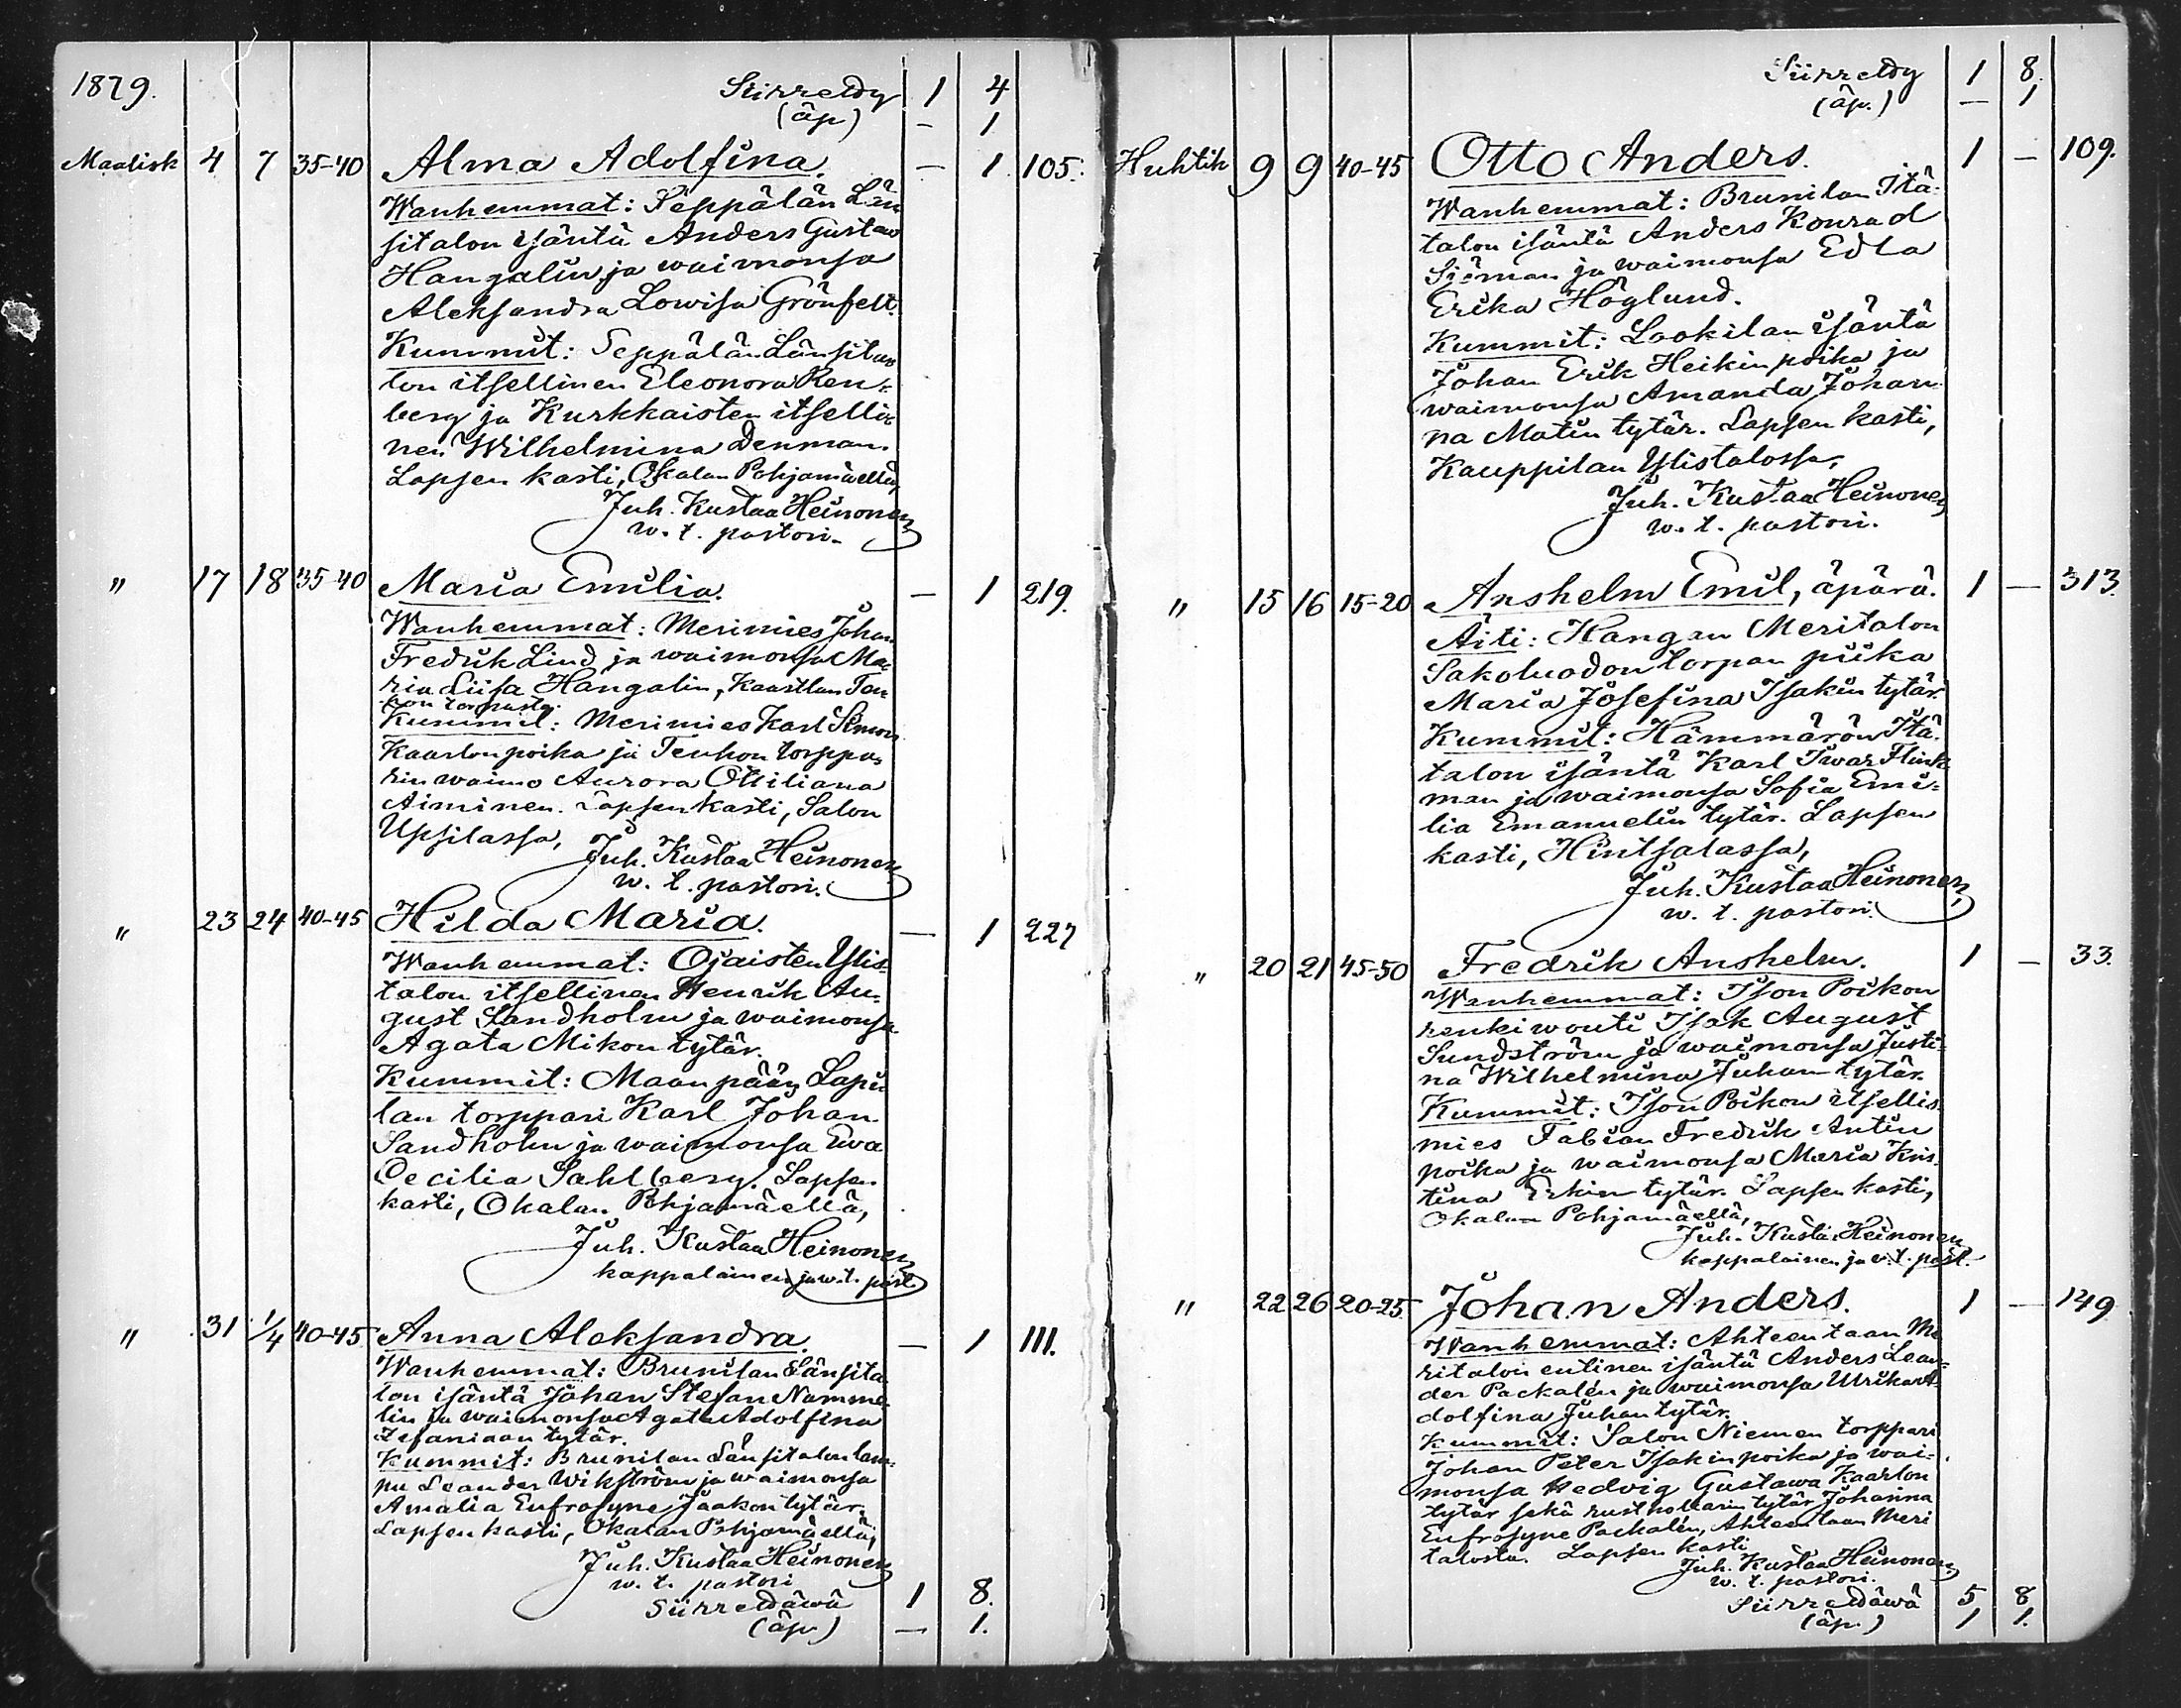 1879.
Siirretty 1 4
(äp) — 1
Maalisk 4 7 35-40 Alma Adolfina. — 1 105.
Wanhemmat: Seppälän Län
sitalon isäntä Anders Gustav
Hangalin ja waimonsa
Aleksandra Lowisa Grönfelt.
Kummit: Seppälän Länsita
lon itsellinen Eleonora Ren-
berg ja Kurkkaisten itselli-
nen Wilhelmina Denman.
Lapsen kasti, Okalan Pohjamäellä,
Juh. Kustaa Heinonen
w. t. pastori.
" 17 18 35-40 Maria Emilia. — 1 219.
Wanhemmat: Merimies Johan
Fredrik Lind ja waimonsa Ma
ria Liisa Hangalin, Kaastlan Ten
hon torpasta.
Kummit: Merimies Karl Simon
Kaarlonpoika ja Tenhon torppa
rin waimo Aurora Ottiliana
Aiminen. Lapsen kasti, Salon
Uppilassa,
Juh. Kustaa Heinonen
w. t. pastori.
" 23 24 40-45 Hilda Maria. — 1 227
Wanhemmat: Ojaisten Ylis-
talon itsellinen Henrik Au-
gust Sandholm ja waimonsa
Agata Mikon tytär.
Kummit: Maanpään Lapi
lan torppari Karl Johan
Sandholm ja waimonsa Ewa
Cecilia Sahlberg. Lapsen
kasti, Okalan Pohjamäellä,
Juh. Kustaa Heinonen
kappalainen ja w. t. past.
" 31 1/4 40-45 Anna Aleksandra. — 1 111.
Wanhemmat: Brunilan Länsita
lon isäntä Johan Stefan Numme
lin ja waimonsa Agata Adolfina
Stefaniaan tytär.
Kummit: Brunilan Länsitalon lam-
pu Leander Wikström ja waimonsa
Amalia Eufrosyne Jaakon tytär.
Lapsen kasti, Okalan Pohjamäellä,
Juh. Kustaa Heinonen
w. t. pastori
Siirrettäwä 1 8.
(äp.) — 1.
Siirretty 1 8.
(äp.) — 1
Huhtik 9 9 40-45 Otto Anders. 1 — 109.
Wanhemmat: Brunilan Itä-
talon isäntä Anders Konrad
Sjöman ja waimonsa Edla
Erika Höglund.
Kummit: Laokilan isäntä
Johan Erik Heikinpoika ja
waimonsa Amanda Johan
na Matin tytär. Lapsen kasti,
Kauppilan Ylistalossa,
Juh. Kustaa Heinonen
w. t. pastori.
" 15 16 15-20 Anshelm Emil, äpärä. 1 — 313.
Äiti: Hangan Meritalon
Sakoluodon torpan piika
Maria Josefina Isakin tytär.
Kummit: Hämmärön Itä-
talon isäntä Karl Iwar Flink
man ja waimonsa Sofia Emi-
lia Emanuelin tytär. Lapsen
kasti, Hintsalassa,
Juh. Kustaa Heinonen,
w. t. pastori.
" 20 21 45-50 Fredrik Anshelm. 1 — 33.
Wanhemmat: Ison Poikon
renkiwouti Isak August
Sundström ja waimonsa Justi-
na Wilhelmina Juhan tytär.
Kummit: Ison Poikon itsellis-
mies Fabian Fredrik Antin
poika ja waimonsa Maria Kris-
tina Erkin tytär. Lapsen kasti,
Okalan Pohjamäellä,
Juh. Kustaa Heinonen
kappalainen ja v. t. past.
" 22 26 20-25. Johan Anders. 1 — 149
Wanhemmat: Ahteentaan Me
ritalon entinen isäntä Anders Lean-
der Packalén ja waimonsa Ulrika A-
dolfina Juhan tytär.
Kummit: Salon Niemen torppari
Johan Peter Isakin poika ja wai-
monsa Hedvig Gustawa Kaarlon
tytär sekä rusthollarin tytär Johanna
Eufrosyne Packalén, Ahteentaan Meri
talosta. Lapsen kasti
Juh. Kustaa Heinonen,
w. t. pastori.
Siirrettäwä 5 8
(äp.) 1 1.